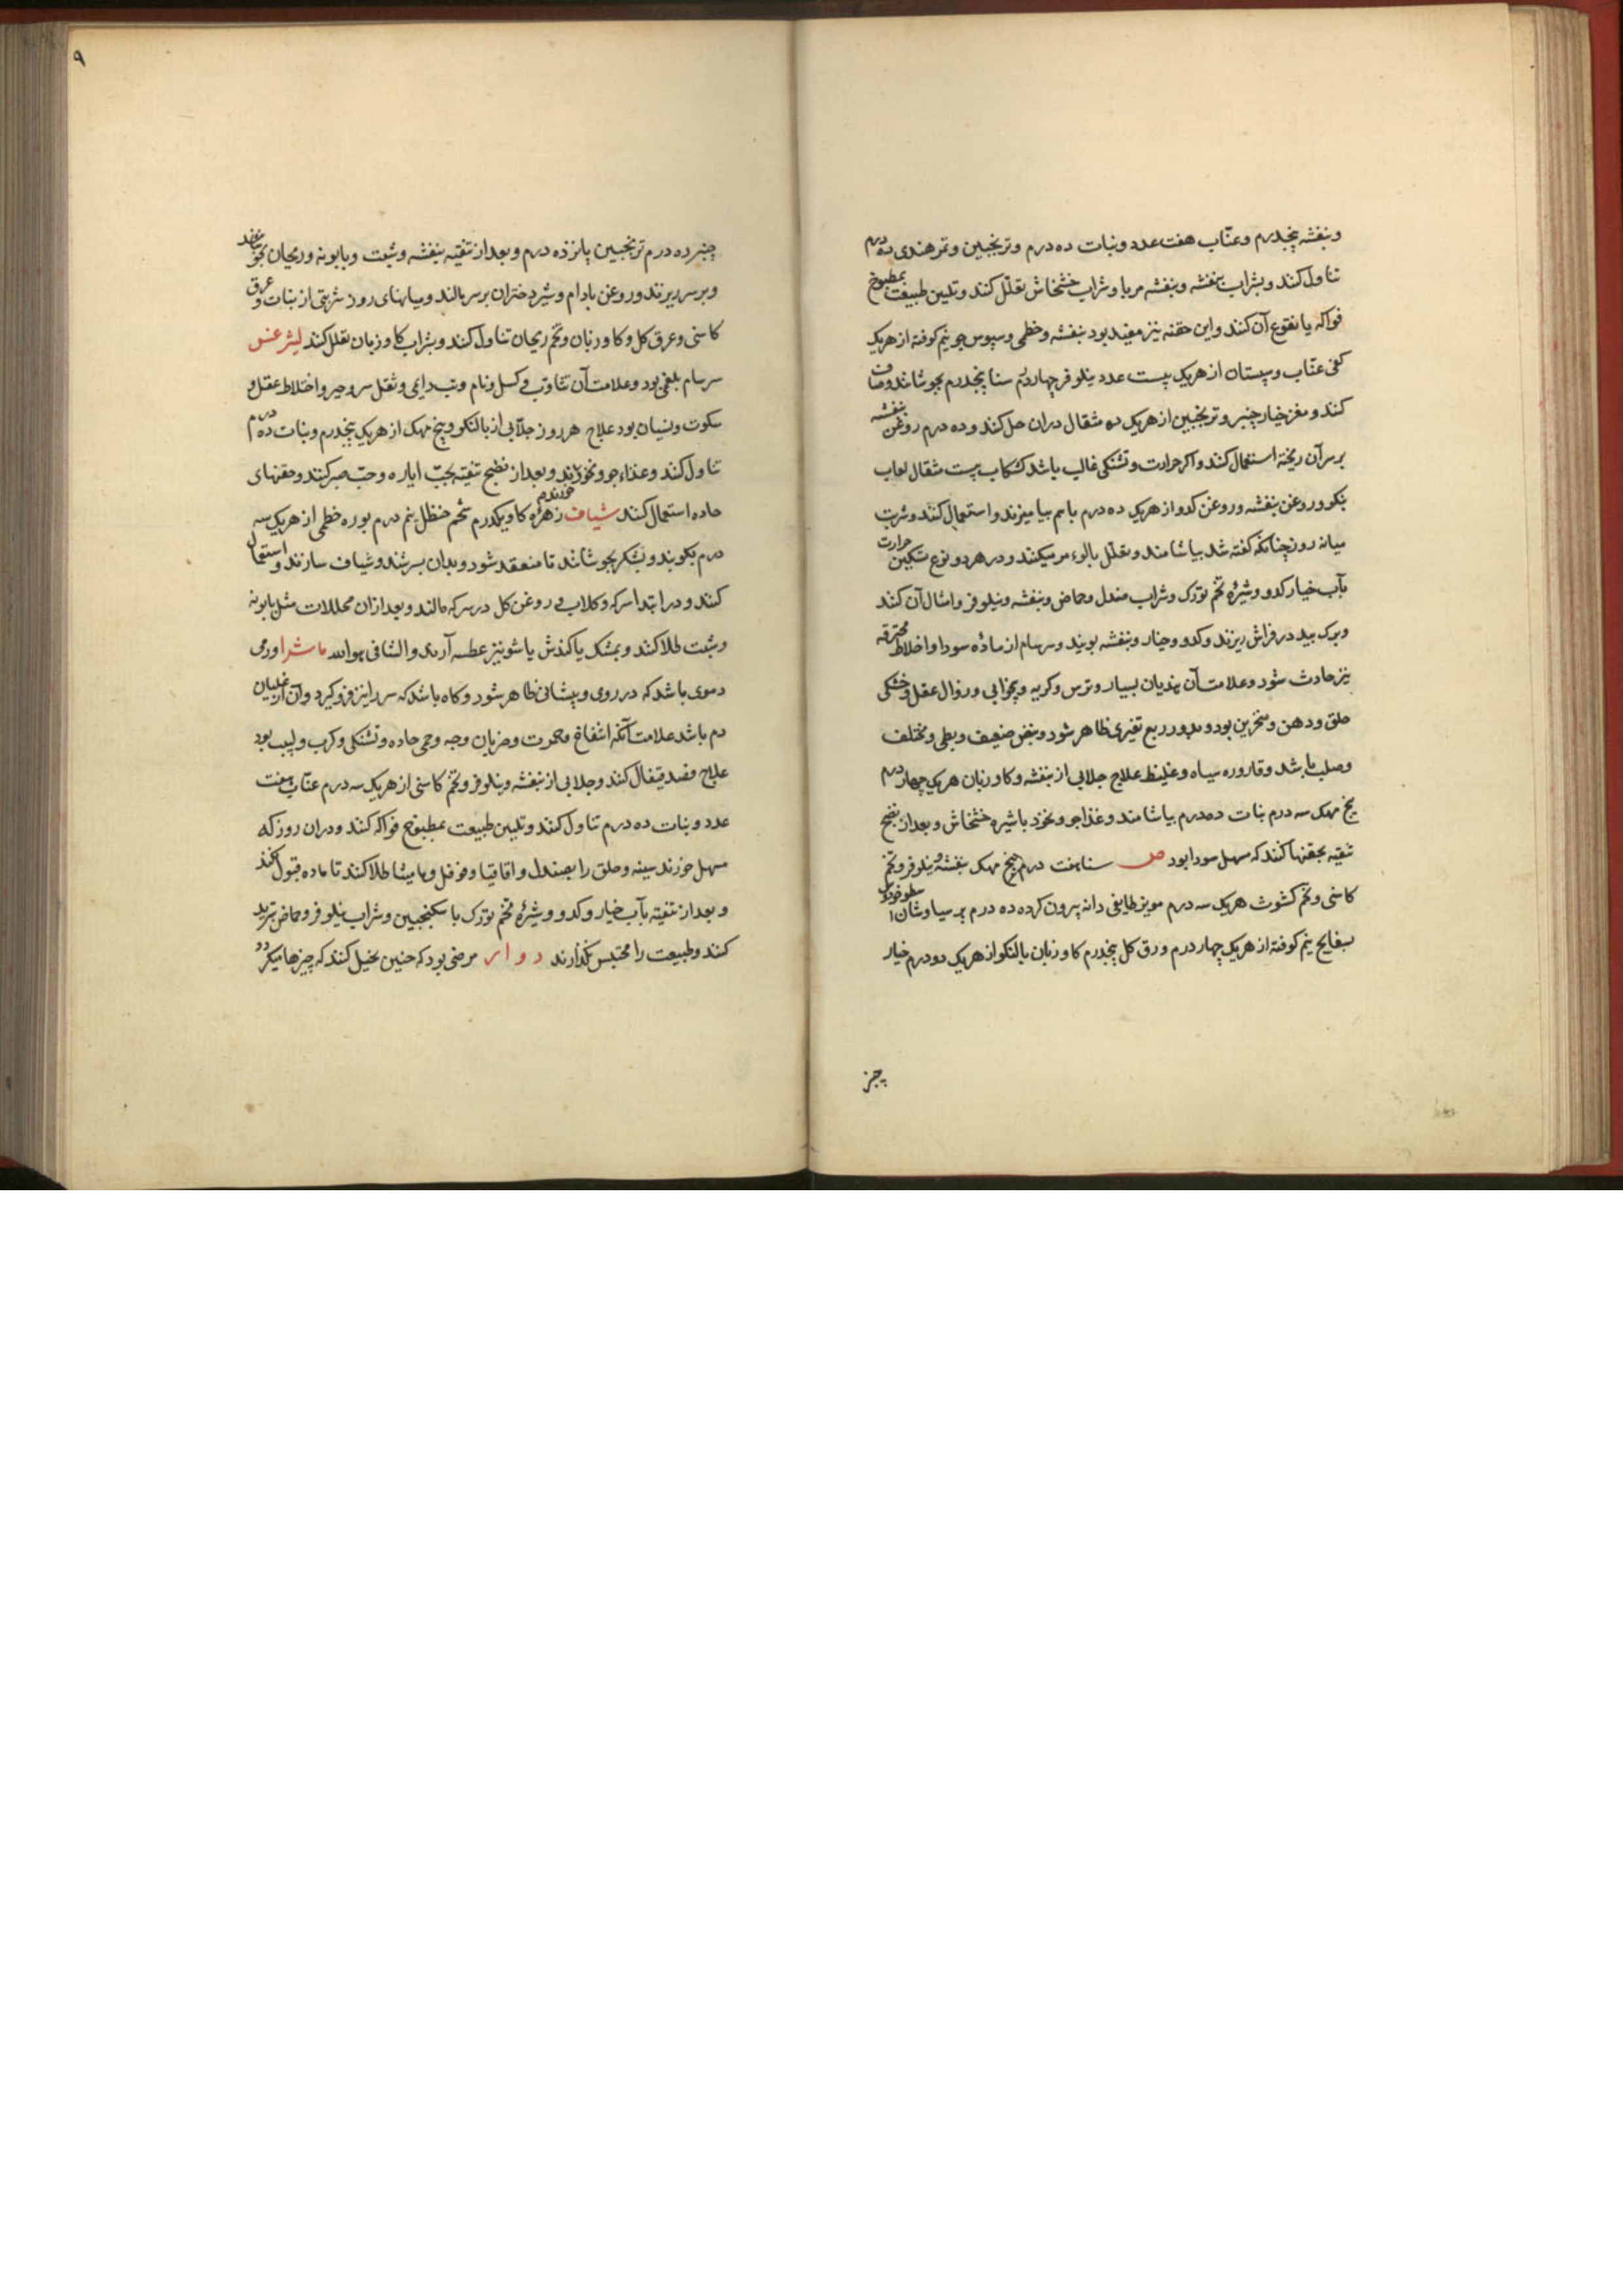 و بنفشه پنجدرم و عنّاب هفت عدد و نبات ده درم و ترنجبین و تمر هندی ده درم
تناول کنند و بشراب بنفشه و بنفشه مربا و شراب خشخاش تقلّل کنند و تلیین طبیعت بمطبوخ
فواکه یا نقوع آن کنند و این حقنه نیز مفید بود بنفشه و خطمی و سپوس جو نیم کوفته از هریک
کفی عنّاب و سپستان از هریک بیست عدد نیلوفر چهار درم سنا پنجدرم بجوشانند و صاف
کنند و مغز خیار چنبر و ترنجبین از هریک ده مثقال دران حل کنند و ده درم روغن بنفشه
بر سر آن ریخته استعمال کنند و اگر حرارت و تشنکی غالب باشد کشکاب بیست مثقال لعاب
بنکو و روغن بنفشه و روغن کدو از هریک ده درم باهم بیامیزند و استعمال کنند و شربت
میانه روز چنانکه کفته شد بیاشامند و تقلّل بالو میکنند و در هر دو نوع تسکین حرارت
بآب خیار کدو و شیرهٔ تخم تورک و شراب صندل و حماض و بنفشه و نیلوفر و امثال آن کنند
و برک بید در فراش ریزند و کدو و خیار و بنفشه بویند و سرسام از مادّه سودا و اخلاط محترقه
نیز حادث شود و علامت آن هذیان بسیار و ترس و کریه و بیخوابی و زوال عقل و خشکی
حلق و دهن و منخرین بود و بدور ربع تغیری ظاهر شود و نبض ضعیف و بطی و مختلف
و صلب باشد و قاروره سیاه و غلیظ علاج جلابی از بنفشه و کاوزبان هریک چهار درم
بیخ مهک سه درم نبات ده درم بیاشامند و غذا جو و نخود با شیره خشخاش و بعد از نضج
تنقیه بحقنها کنند که مسهل سودا بود ص سنا هفت درم بیخ مهک بنفشه و نیلوفر و تخم
کاسنی و تخم کشوث هریک سه درم مویز طایفی دانه بیرون کرده ده درم پرسیاوشان اسطوخودوس
بسفایج نیم کوفته از هریک چهار درم ورق کل پنجدرم کاوزبان بالنکو از هریک دو درم خیار
چنبر
۹
چنبر ده درم ترنجبین پانزده درم و بعد از تنقیه بنفشه و شبت و بابونه و ریحان بجوشانند
و بر سر ریزند و روغن بادام و شیر دختران بر سر مالند و میانهای روز شربتی از نبات و عرق
کاسنی و عرق کل و کاوزبان و تخم ریحان تناول کنند و بشراب کاوزبان تقلل کنند لیثرغس
سرسام بلغمی بود و علامت آن تثاوب و کسل و تب دایمی و ثقل سر و اختلاط عقل و
سکوت و نسیان بود علاج هر روز جلّابی از بالنکو و بیخ مهک از هریک پنجدرم و نبات ده درم
تناول کنند و غذا جو و نخود خورند و بعد از نضج تنقیه بحبّ ایاره و حبّ صبر کنند و حقنهای
حاده استعمال کنند شیاف زهرهٔ کاو یکدرم شحم حنظل نیم درم بوره خطمی از هریک سه
درم بکوبند و بشکر بجوشانند تا منعقد شود و بدان بسرشند و شیاف سازند و استعمال
کنند و در ابتدا سرکه و کلاب و روغن کل در سر مالند و بعد ازان محللات مثل بابونه
و شبت طلا کنند و بمشک یا کندش یا شونیز عطسه آرند والشافی هو الله ماشرا ورمی
دموی باشد که در روی و پیشانی ظاهر شود و کاه باشد که سر را نیز فرو کیرد و آن از غلیان
دم باشد علامت آنکه انتفاخ و حمرت و ضربان وجه و حمی حاده و تشنکی و کرب و لهیب بود
علاج فصد قیفال کنند و جلابی از بنفشه و نیلوفر و تخم کاسنی از هریک سه درم عنّاب هفت
عدد و نبات ده درم تناول کنند و تلیین طبیعت بمطبوخ فواکه کنند و دران روز که
مسهل خورند سینه و حلق را بصندل و اقاقیا و فوفل و مامیثا طلا کنند تا ماده قبول نکند
و بعد از تنقیه بآب خیار و کدو و شیرهٔ تخم تورک با سکنجبین و شراب نیلوفر و حماض تبرید
کنند و طبیعت را محتبس نکذارند دوار مرضی بود که چنین تخیل کنند که چیزها میکردد